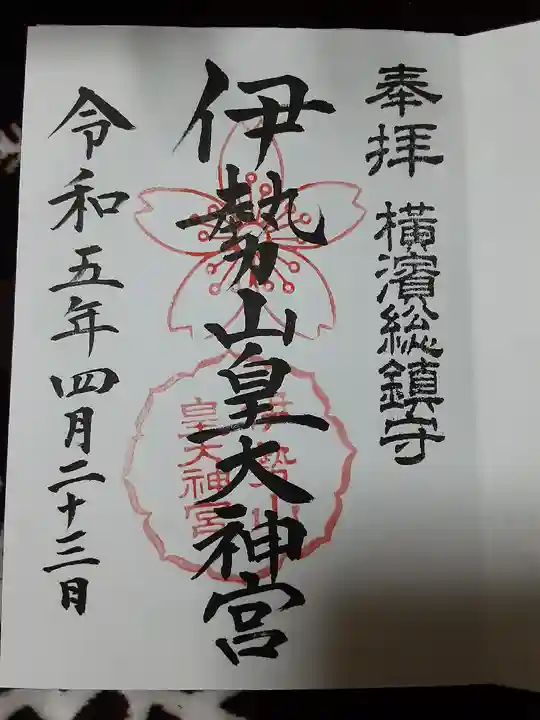 奉拝 横濱総鎮守
伊勢山皇大神宮
伊勢山
皇大神宮
令和五年四月二十三日